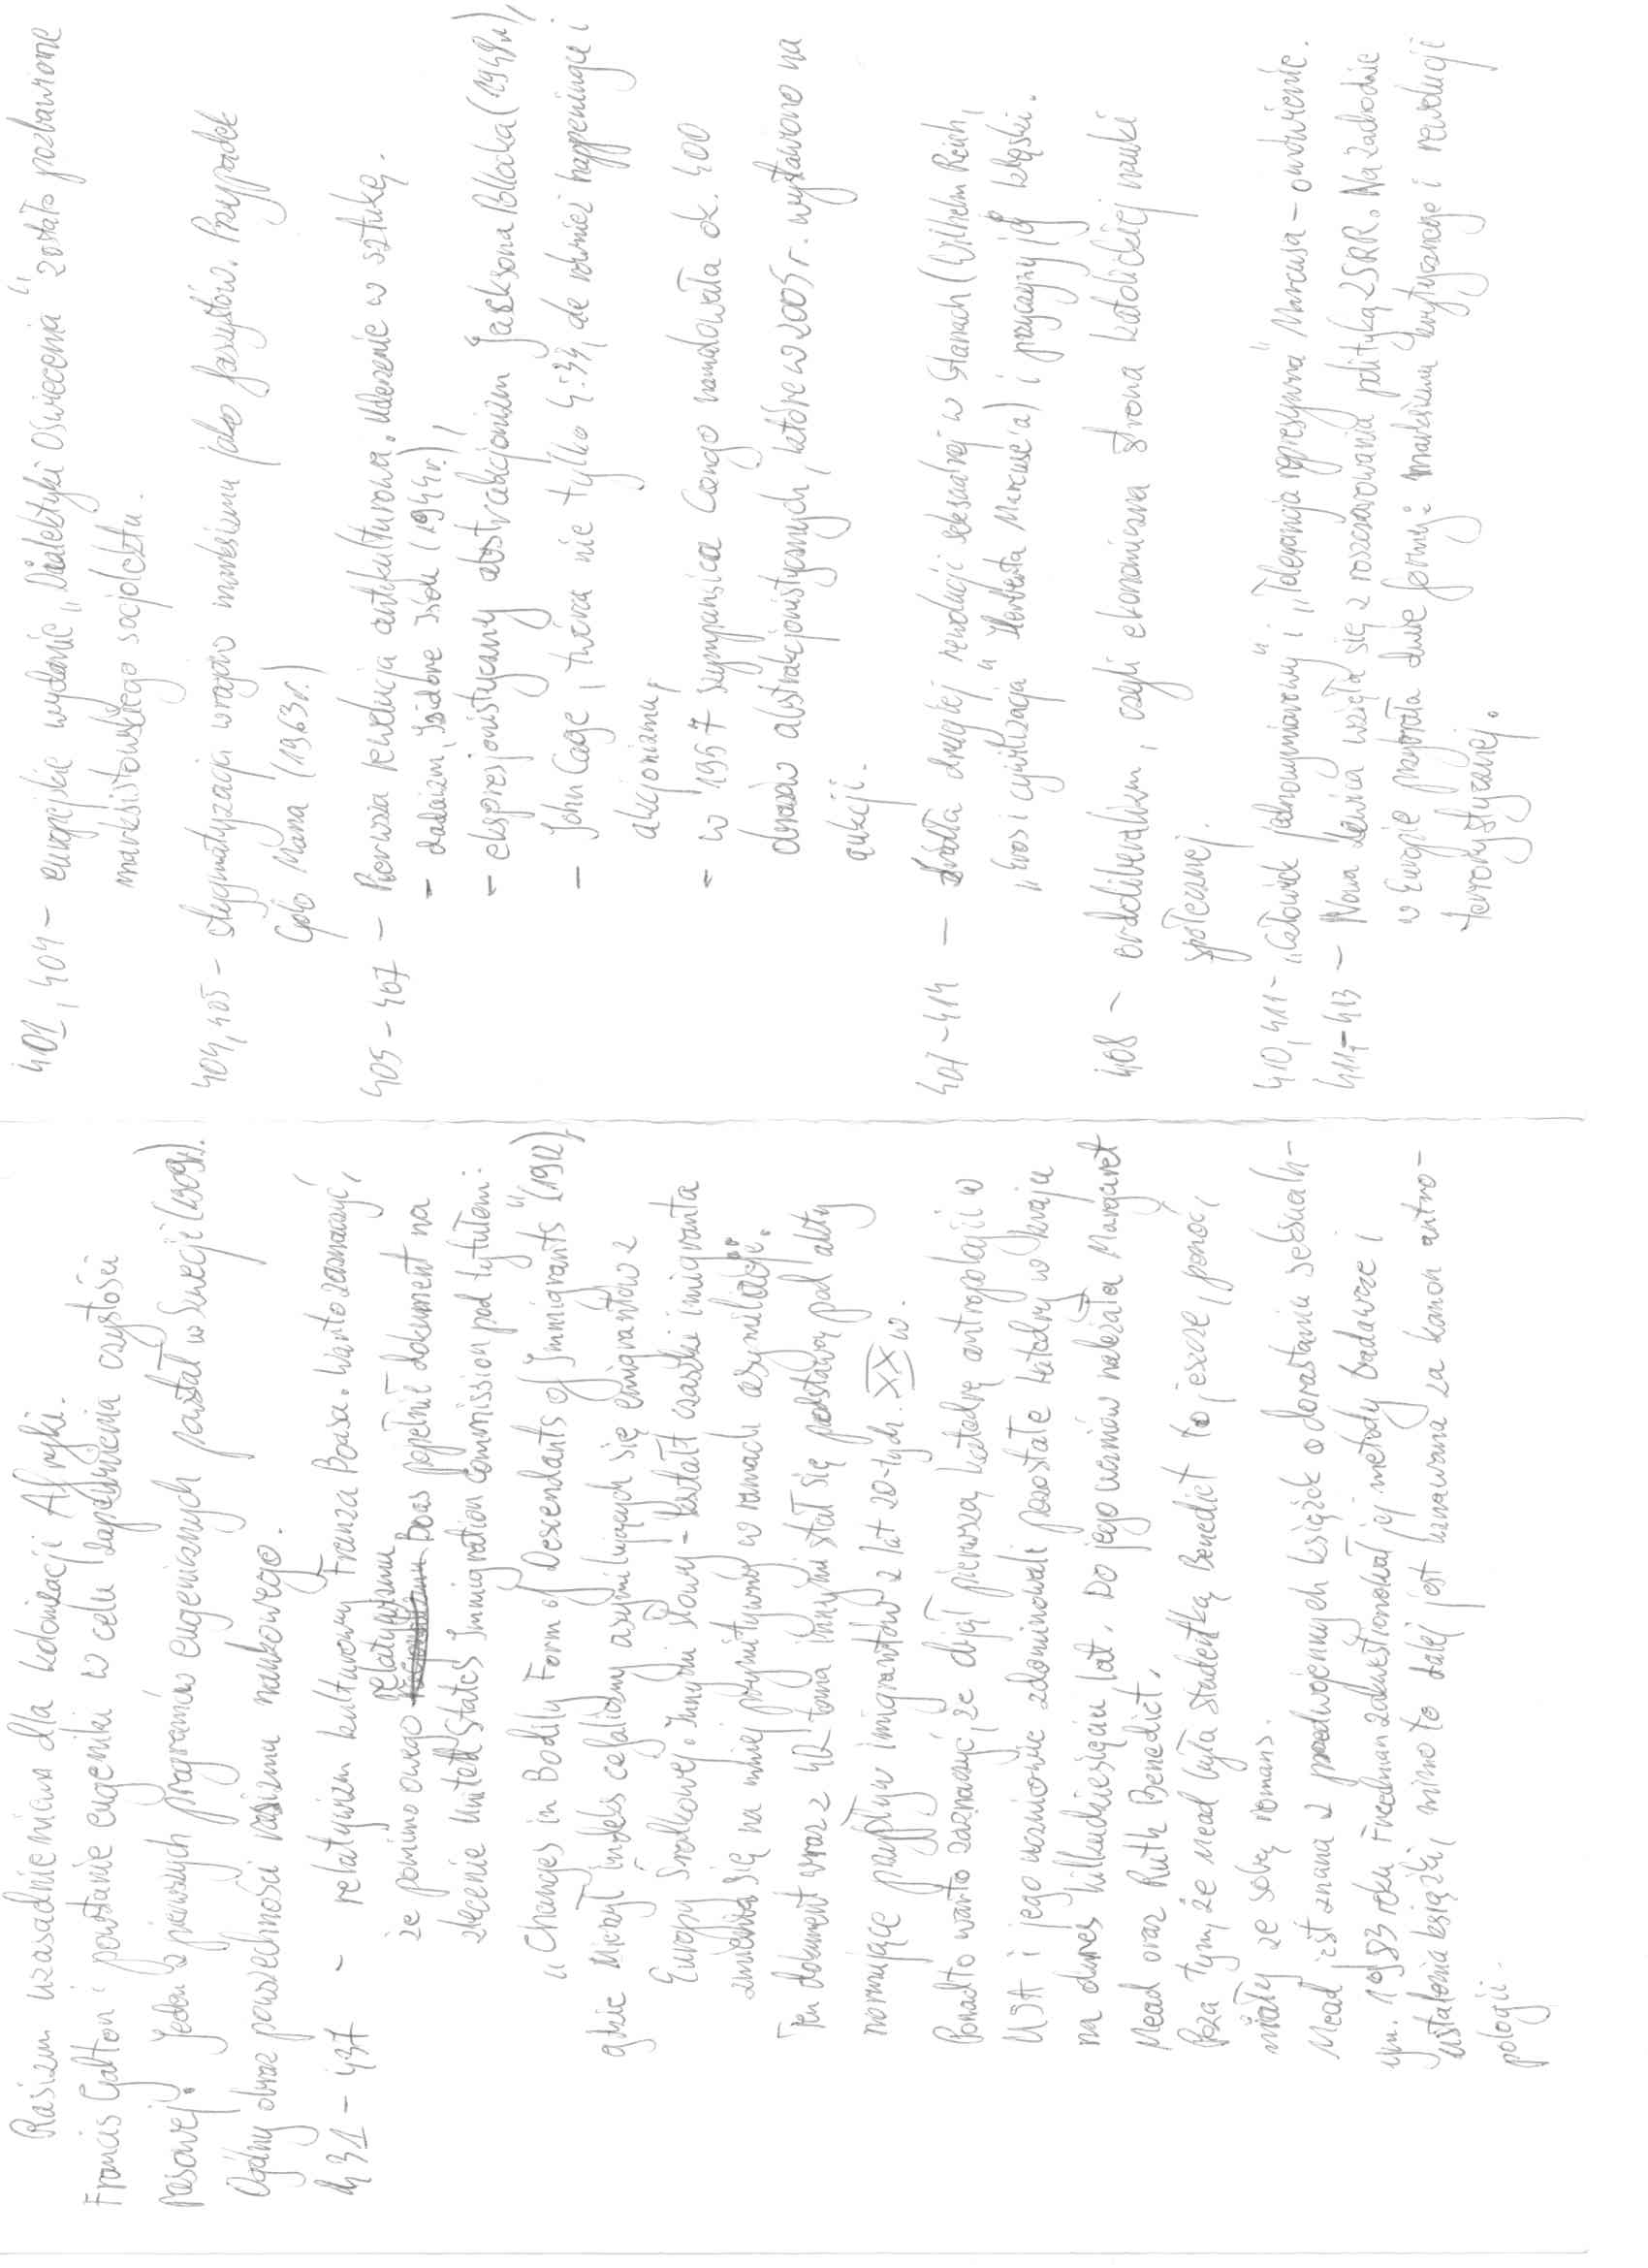 Rasizm uzasadnieniem dla kolonizacji Afryki.
Francis Galton i powstanie eugeniki w celu zapewnienia czystości
rasowej. Jeden z pierwszych programów eugenicznych powstał w Szwecji (1909r.).
Ogólny obraz powszechności rasizmu naukowego.
431 – 437 – relatywizm kulturowy Franza Boasa. Warto zaznaczyć,
że pomimo owego relatywizmu Boas popełnił dokument na
zlecenie United States Immigration Commission pod tytułem:
„Changes in Bodily Form of Descendants of Immigrants" (1912),
gdzie mierzył indeks cefaliczny asymilujących się emigrantów z
Europy Środkowej. Innymi słowy – kształt czaszki imigranta
zmienia się na mniej prymitywny w ramach asymilacji.
Ten dokument wraz z 42 toma innymi stał się podstawą pod akty
normujące przypływ imigrantów z lat 20-tych. XX w.
Ponadto warto zaznaczyć, że objął pierwszą katedrę antropologii w
USA i jego uczniowie zdominowali pozostałe katedry w kraju
na okres kilkudziesięciu lat. Do jego uczniów należała Margaret
Mead oraz Ruth Benedict.
Poza tym, że Mead była studentką Benedict to jeszcze, ponoć,
miały ze sobą romans.
Mead jest znana z przedwojennych książek o dorastaniu seksualn-
ym. 1983 roku Freedman zakwestionował jej metody badawcze i
ustalenia książki, mimo to dalej jest uznawana za kanon antro-
pologii.
401, 404 – europejskie wydanie „Dialektyki Oświecenia" zostało pozbawione
marksistowskiego socjolektu.
404, 405 – stygmatyzacja wrogów marksizmu jako faszystów. Przypadek
Golo Manna (1963r.)
405 – 407 – Pierwsza rewolucja antykulturowa. Uderzenie w sztukę.
– dadaizm, Isidore Isou (1944r.),
– ekspresjonistyczny abstrakcjonizm Jacksona Pollocka (1948r.),
– John Cage, twórca nie tylko 4:33, ale również happeningu i
akcjonizmu,
– w 1957 szympansica Congo namalowała ok. 400
obrazów abstrakcjonistycznych, które w 2005 r. wystawiono na
aukcji.
407 – 414 – źródła drugiej rewolucji seksualnej w Stanach (Wilhelm Reich,
„Eros i cywilizacja" Herberta Marcuse'a) i przyczyny jej klęski.
408 – ordoliberalizm, czyli ekonomiczna strona katolickiej nauki
społecznej.
410, 411 – „Człowiek jednowymiarowy" i „Tolerancja represywna" Marcusa – omówienie.
411 – 413 – Nowa Lewica wzięła się z rozczarowania polityką ZSRR. Na zachodzie
w Europie przybrała dwie formy: marksizmu krytycznego i rewolucji
terrorystycznej.